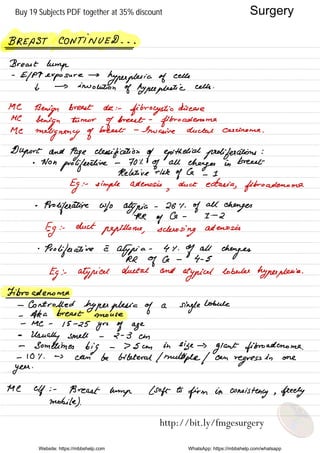 Buy 19 Subjects PDF together at 35% discount
Surgery
BREAST CONTINUED...
Breast lump
- E/PT exposure → hyperplasia of cells
↓ → involution of hyperplastic cells.
MC Benign breast de :- fibrocystic disease
MC benign tumor of breast - fibroadenoma
MC malignancy of breast - Invasive ductal carcinoma.
Dupont and Page classification of epithelial proliferations :
• Non proliferative - 70% of all changes in breast
Relative risk of Ca - 1
Eg:- simple adenosis, duct ectasia, fibroadenoma
• Proliferative w/o atypia - 26%. of all changes
RR of Ca - 1-2
Eg:- duct papilloma, sclerosing adenosis
• Proliferative c̄ atypia - 4%. of all changes
RR of Ca - 4-5
Eg:- atypical ductal and atypical lobular hyperplasia.
Fibroadenoma
- Controlled hyperplasia of a single lobule
- Aka breast mouse
- MC - 15-25 yrs of age
- Usually small - 2-3 cm
- Sometimes big - >5 cm in size → giant fibroadenoma
- 10%. → can be bilateral / multiple / can regress in one
year.
MC c/f :- Breast lump (soft to firm in consistency, freely
mobile).
http://bit.ly/fmgesurgery
Website: https://mbbshelp.com
WhatsApp: https://mbbshelp.com/whatsapp